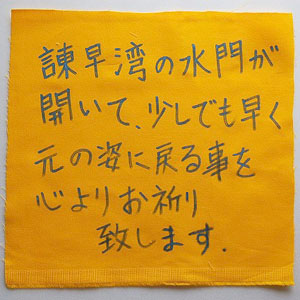 諫早湾の水門が
開いて、少しでも早く
元の姿に戻る事を
心よりお祈り
致します.